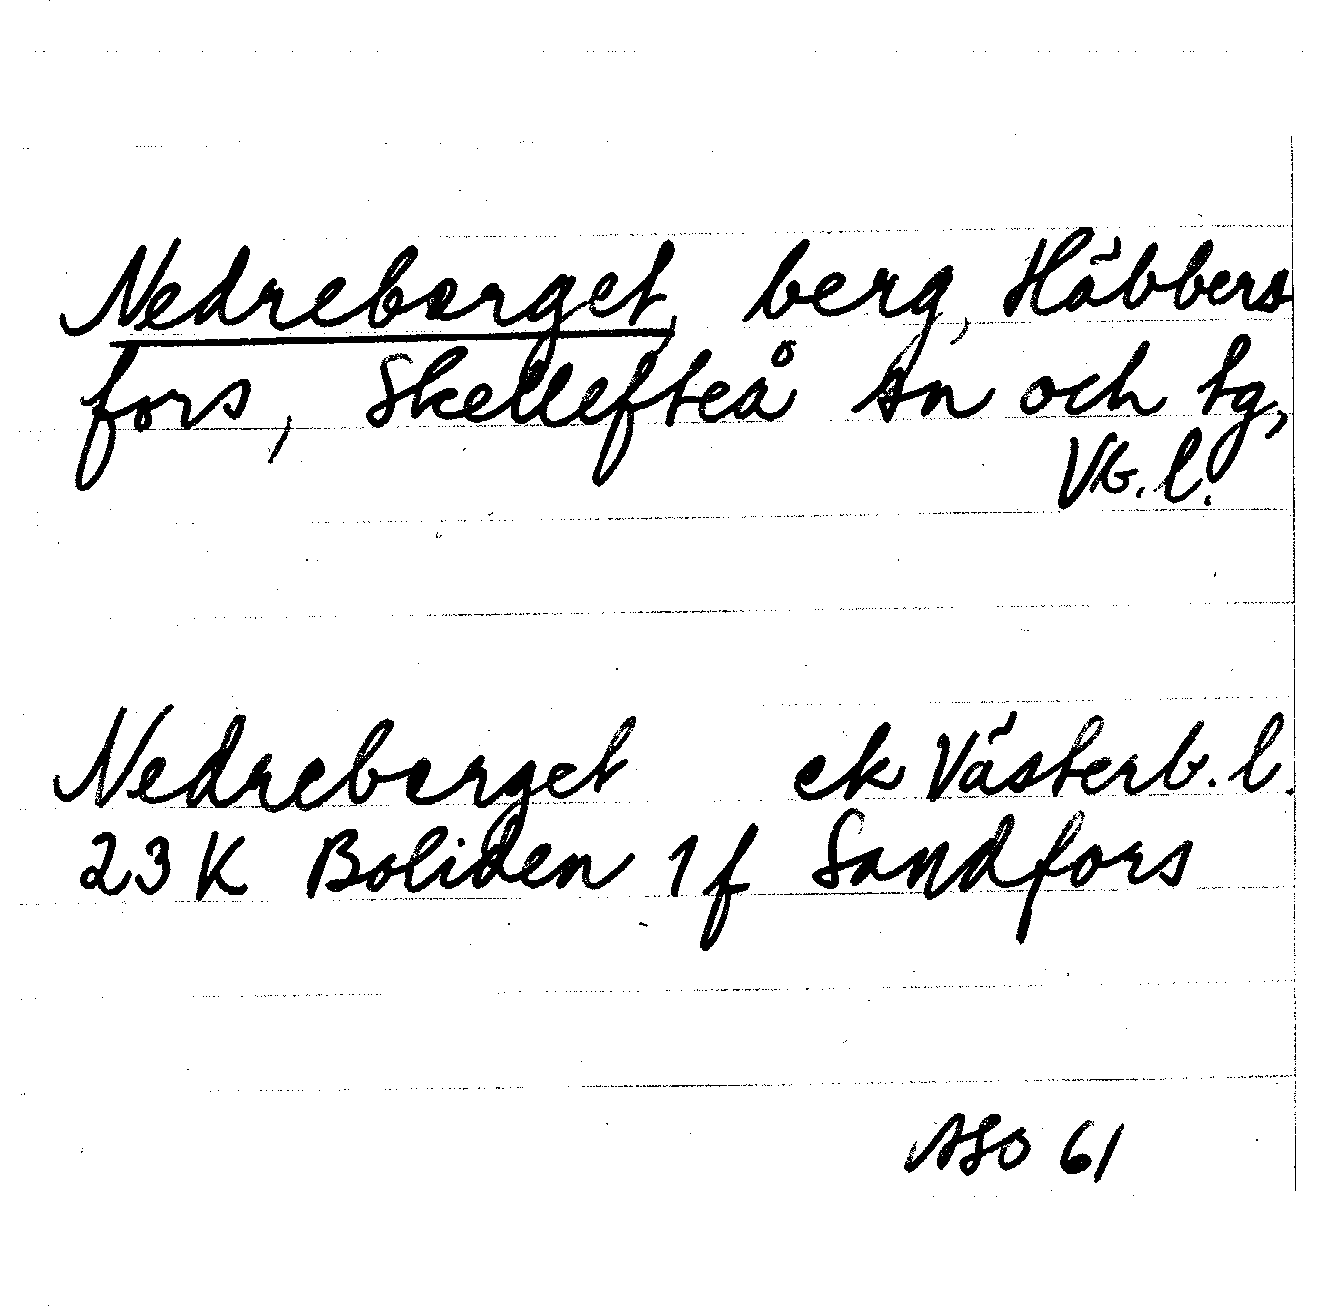 Nedreberget, berg, Häbbers
fors, Skellefteå sn och tg,
Vb. l.
Nedreberget ek Västerb. l.
23 K Boliden 1f Sandfors
ASO 61